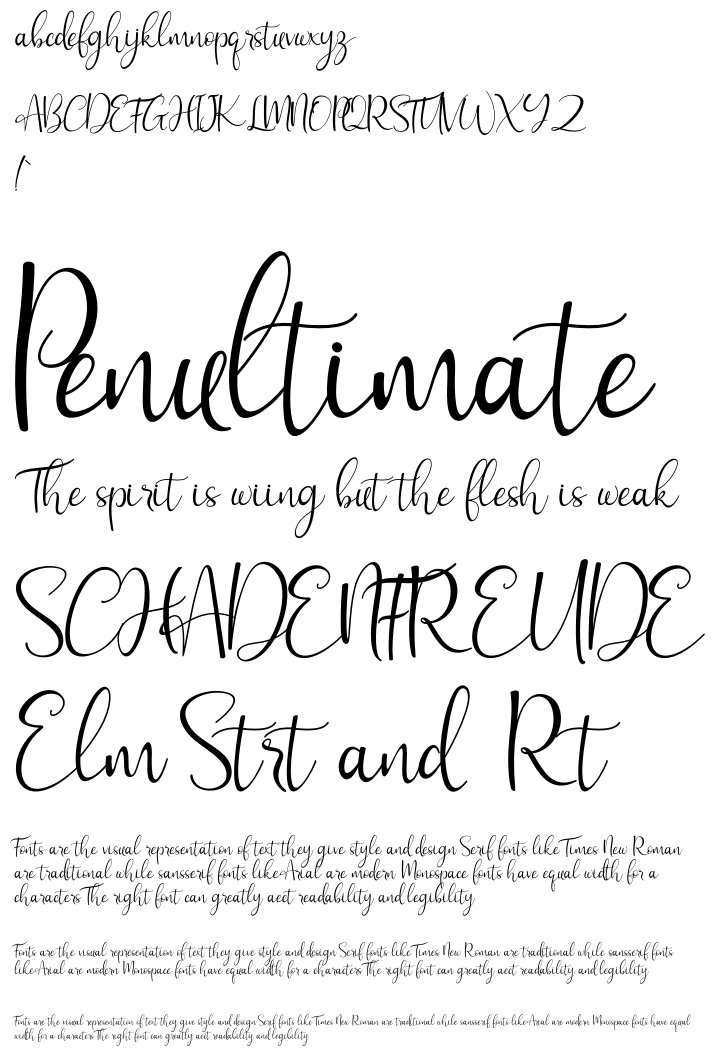 abcdefghijklmnopqrstuvwxyz
ABCDEFGHIJKLMNOPQRSTUVWXYZ
Penultimate
The spirit is wiing but the flesh is weak
SCHADENFREUDE
Elm Strt and Rt
Fonts are the visual representation of text they give style and design Serif fonts like Times New Roman
are traditional while sansserif fonts like Arial are modern Monospace fonts have equal width for a
characters The right font can greatly aect readability and legibility
Fonts are the visual representation of text they give style and design Serif fonts like Times New Roman are traditional while sansserif fonts
like Arial are modern Monospace fonts have equal width for a characters The right font can greatly aect readability and legibility
Fonts are the visual representation of text they give style and design Serif fonts like Times New Roman are traditional while sansserif fonts like Arial are modern Monospace fonts have equal
width for a characters The right font can greatly aect readability and legibility